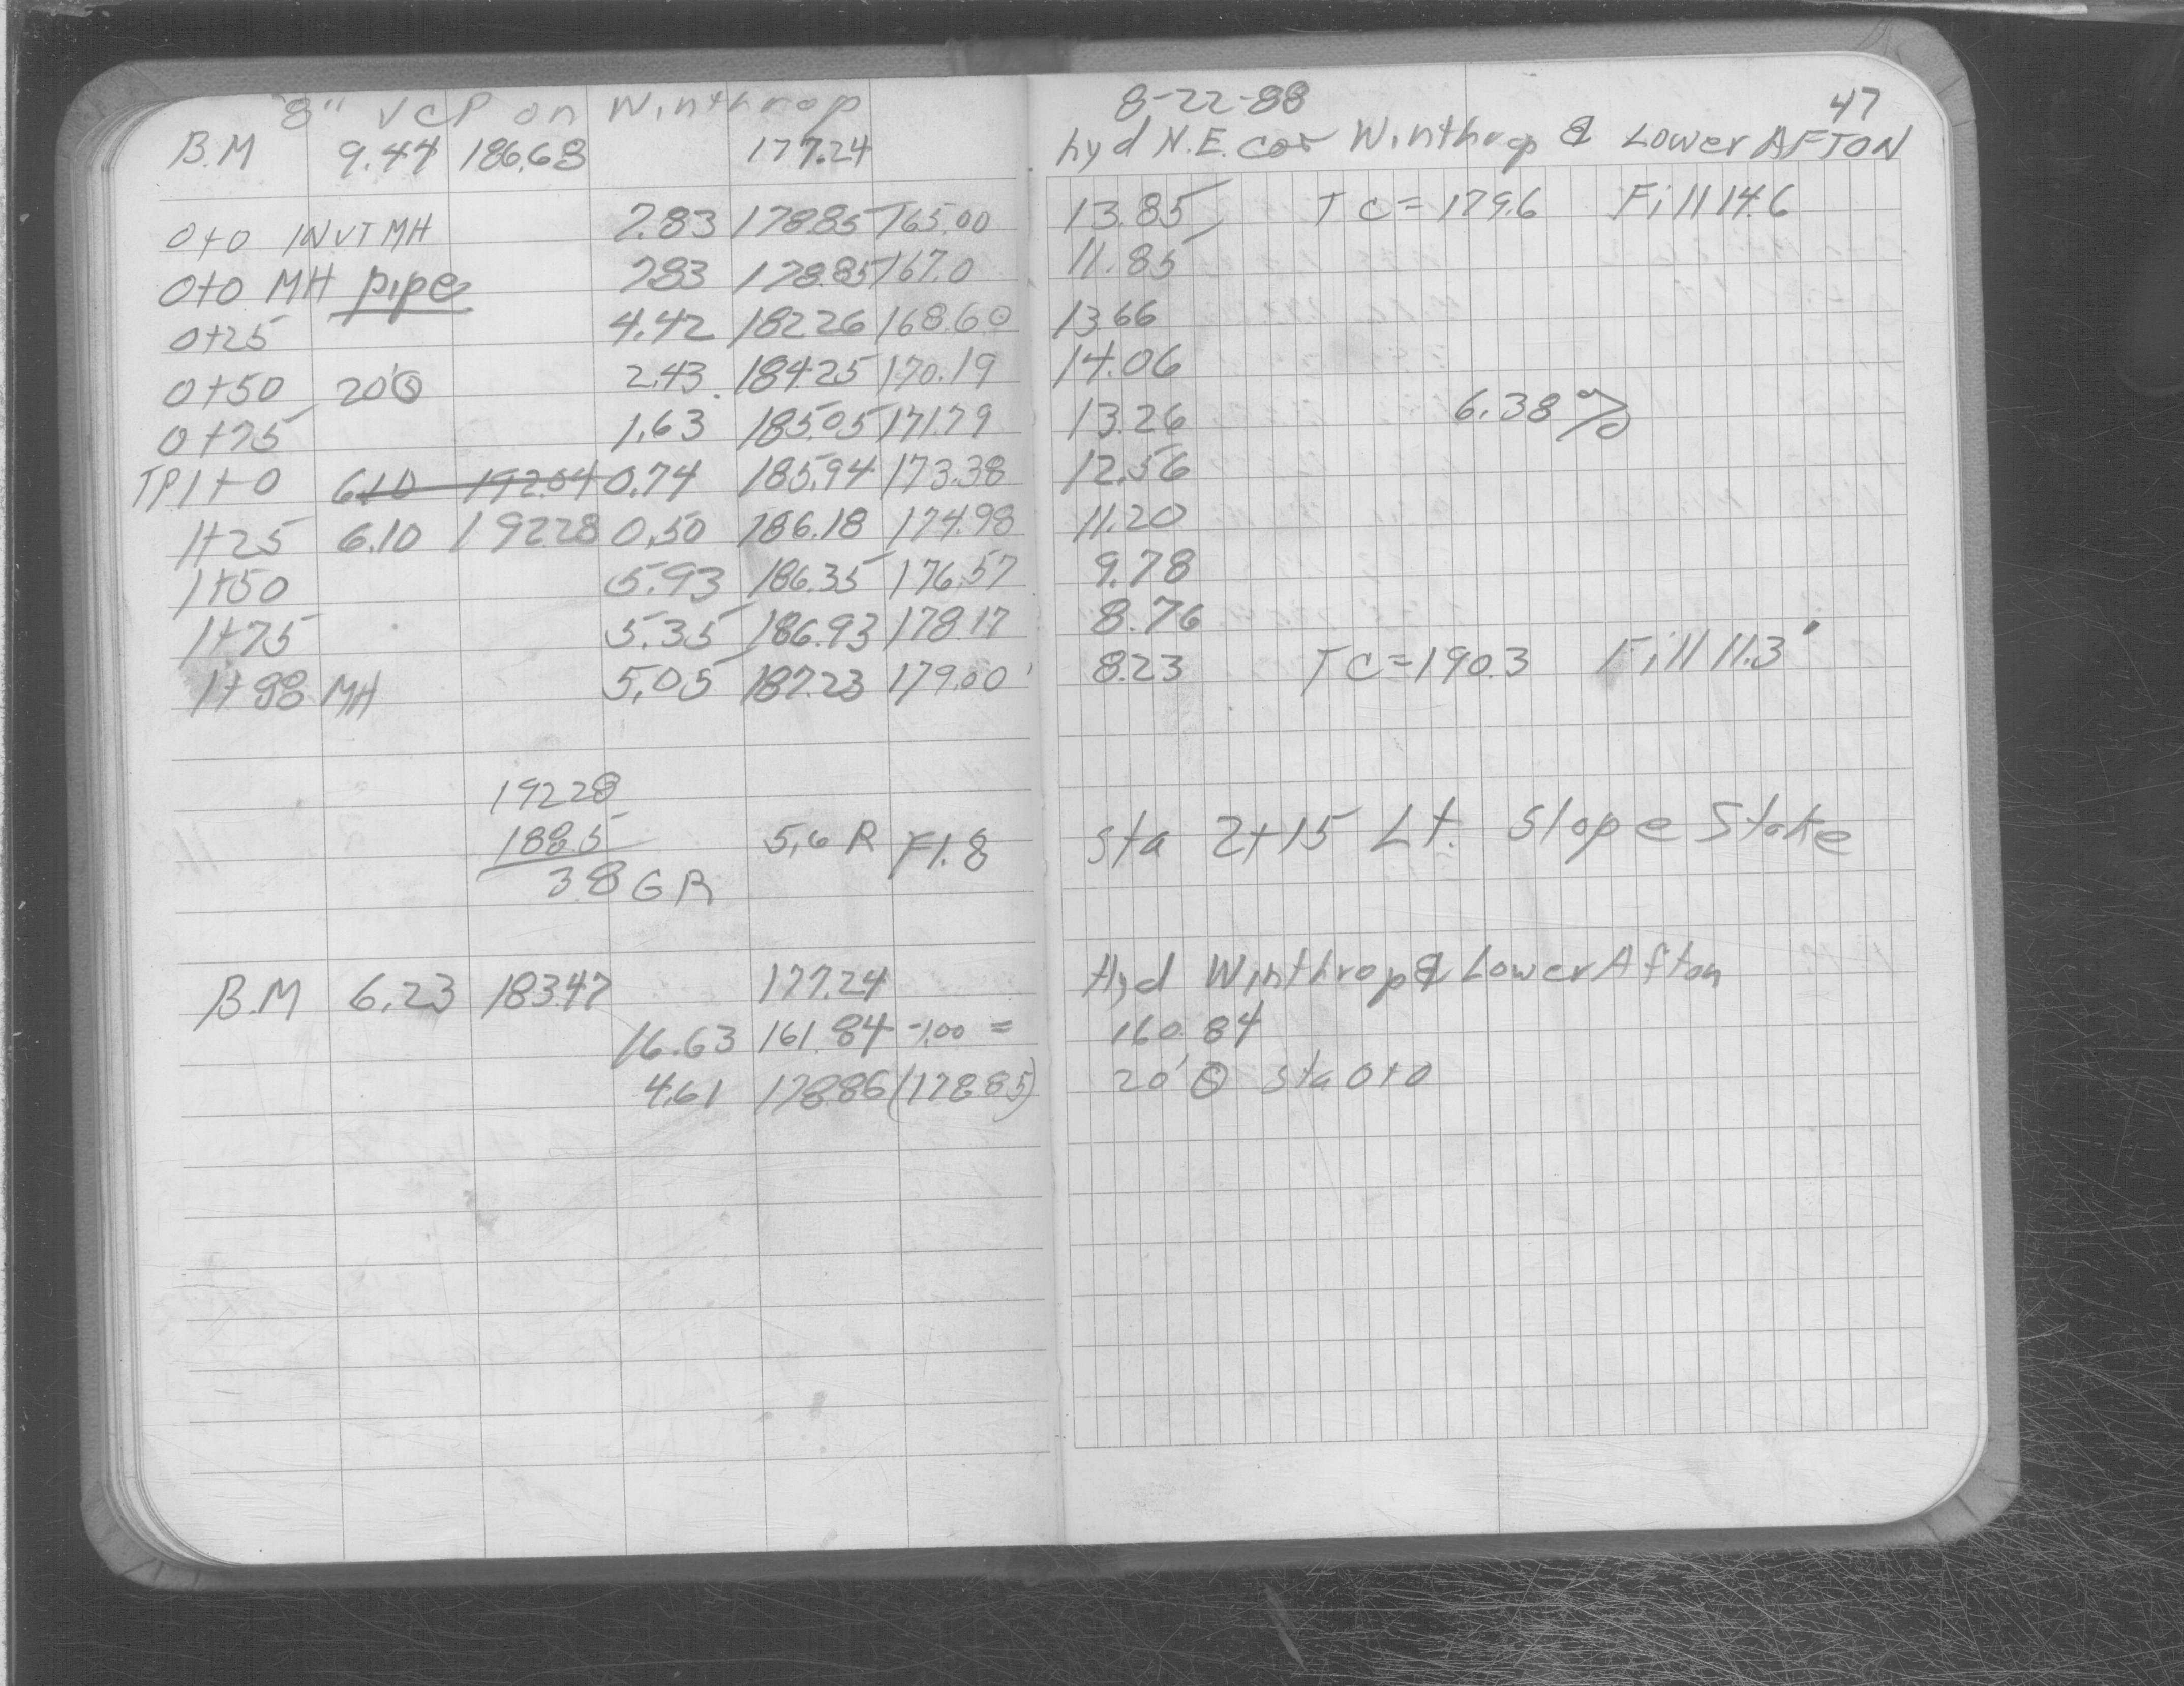 "8" VCP on Winthrop
B.M 9.44 186.68 177.24
0+0 INVT MH 7.83 178.85 165.00
0+0 MH pipe 783 178.85 167.0
0+25 4.42 18226 168.60
0+50 20'Ⓢ 2.43 184.25 170.19
0+75 1.63 185.05 171.79
TP 1+0 6.10 192.04 0.74 185.94 173.38
1+25 6.10 19228 0.50 186.18 174.98
1+50 5.93 186.35 176.57
1+75 5.35 186.93 178.17
1+88 MH 5.05 187.23 179.00
19228
188.5
3.8 GR 5.6 R F1.8
B.M 6.23 183.47 177.24
16.63 161.84 -1.00 =
4.61 178.86 (178.85)
8-22-88 47
hyd N.E. cor Winthrop & Lower AFTON
13.85 TC=179.6 Fill 14.6
11.85
13.66
14.06
13.26 6.38%
12.56
11.20
9.78
8.76
8.23 TC=190.3 Fill 11.3'
Sta 2+15 Lt. Slope Stake
Hyd Winthrop & Lower Afton
160.84
20' Ⓢ Sta 0+0